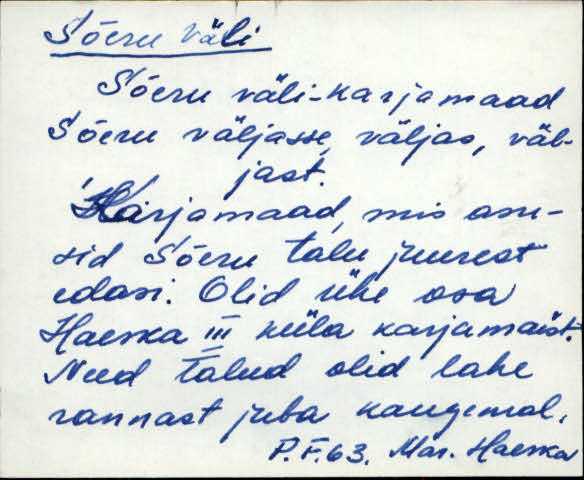 Sõeru väli
Sõeru väli-karjamaad
Sõeru väljasse, väljas, väl-
jast.
Karjamaad, mis asu-
sid Sõeru talu juurest
edasi. Olid ühe osa
Haeska III küla karjamaist.
Need talud olid lahe
rannast juba kaugemal.
P.F.63. Mar. Haeska